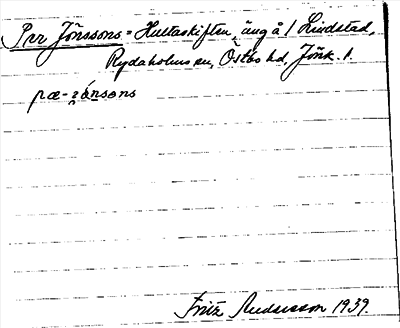 Per Jönssons = Hultaskiften, äng å / Lindstad,
Rydaholms sn, Östbo hd, Jönk. l.
pæ-ʒ́nsons
Fritz Andersson 1939.